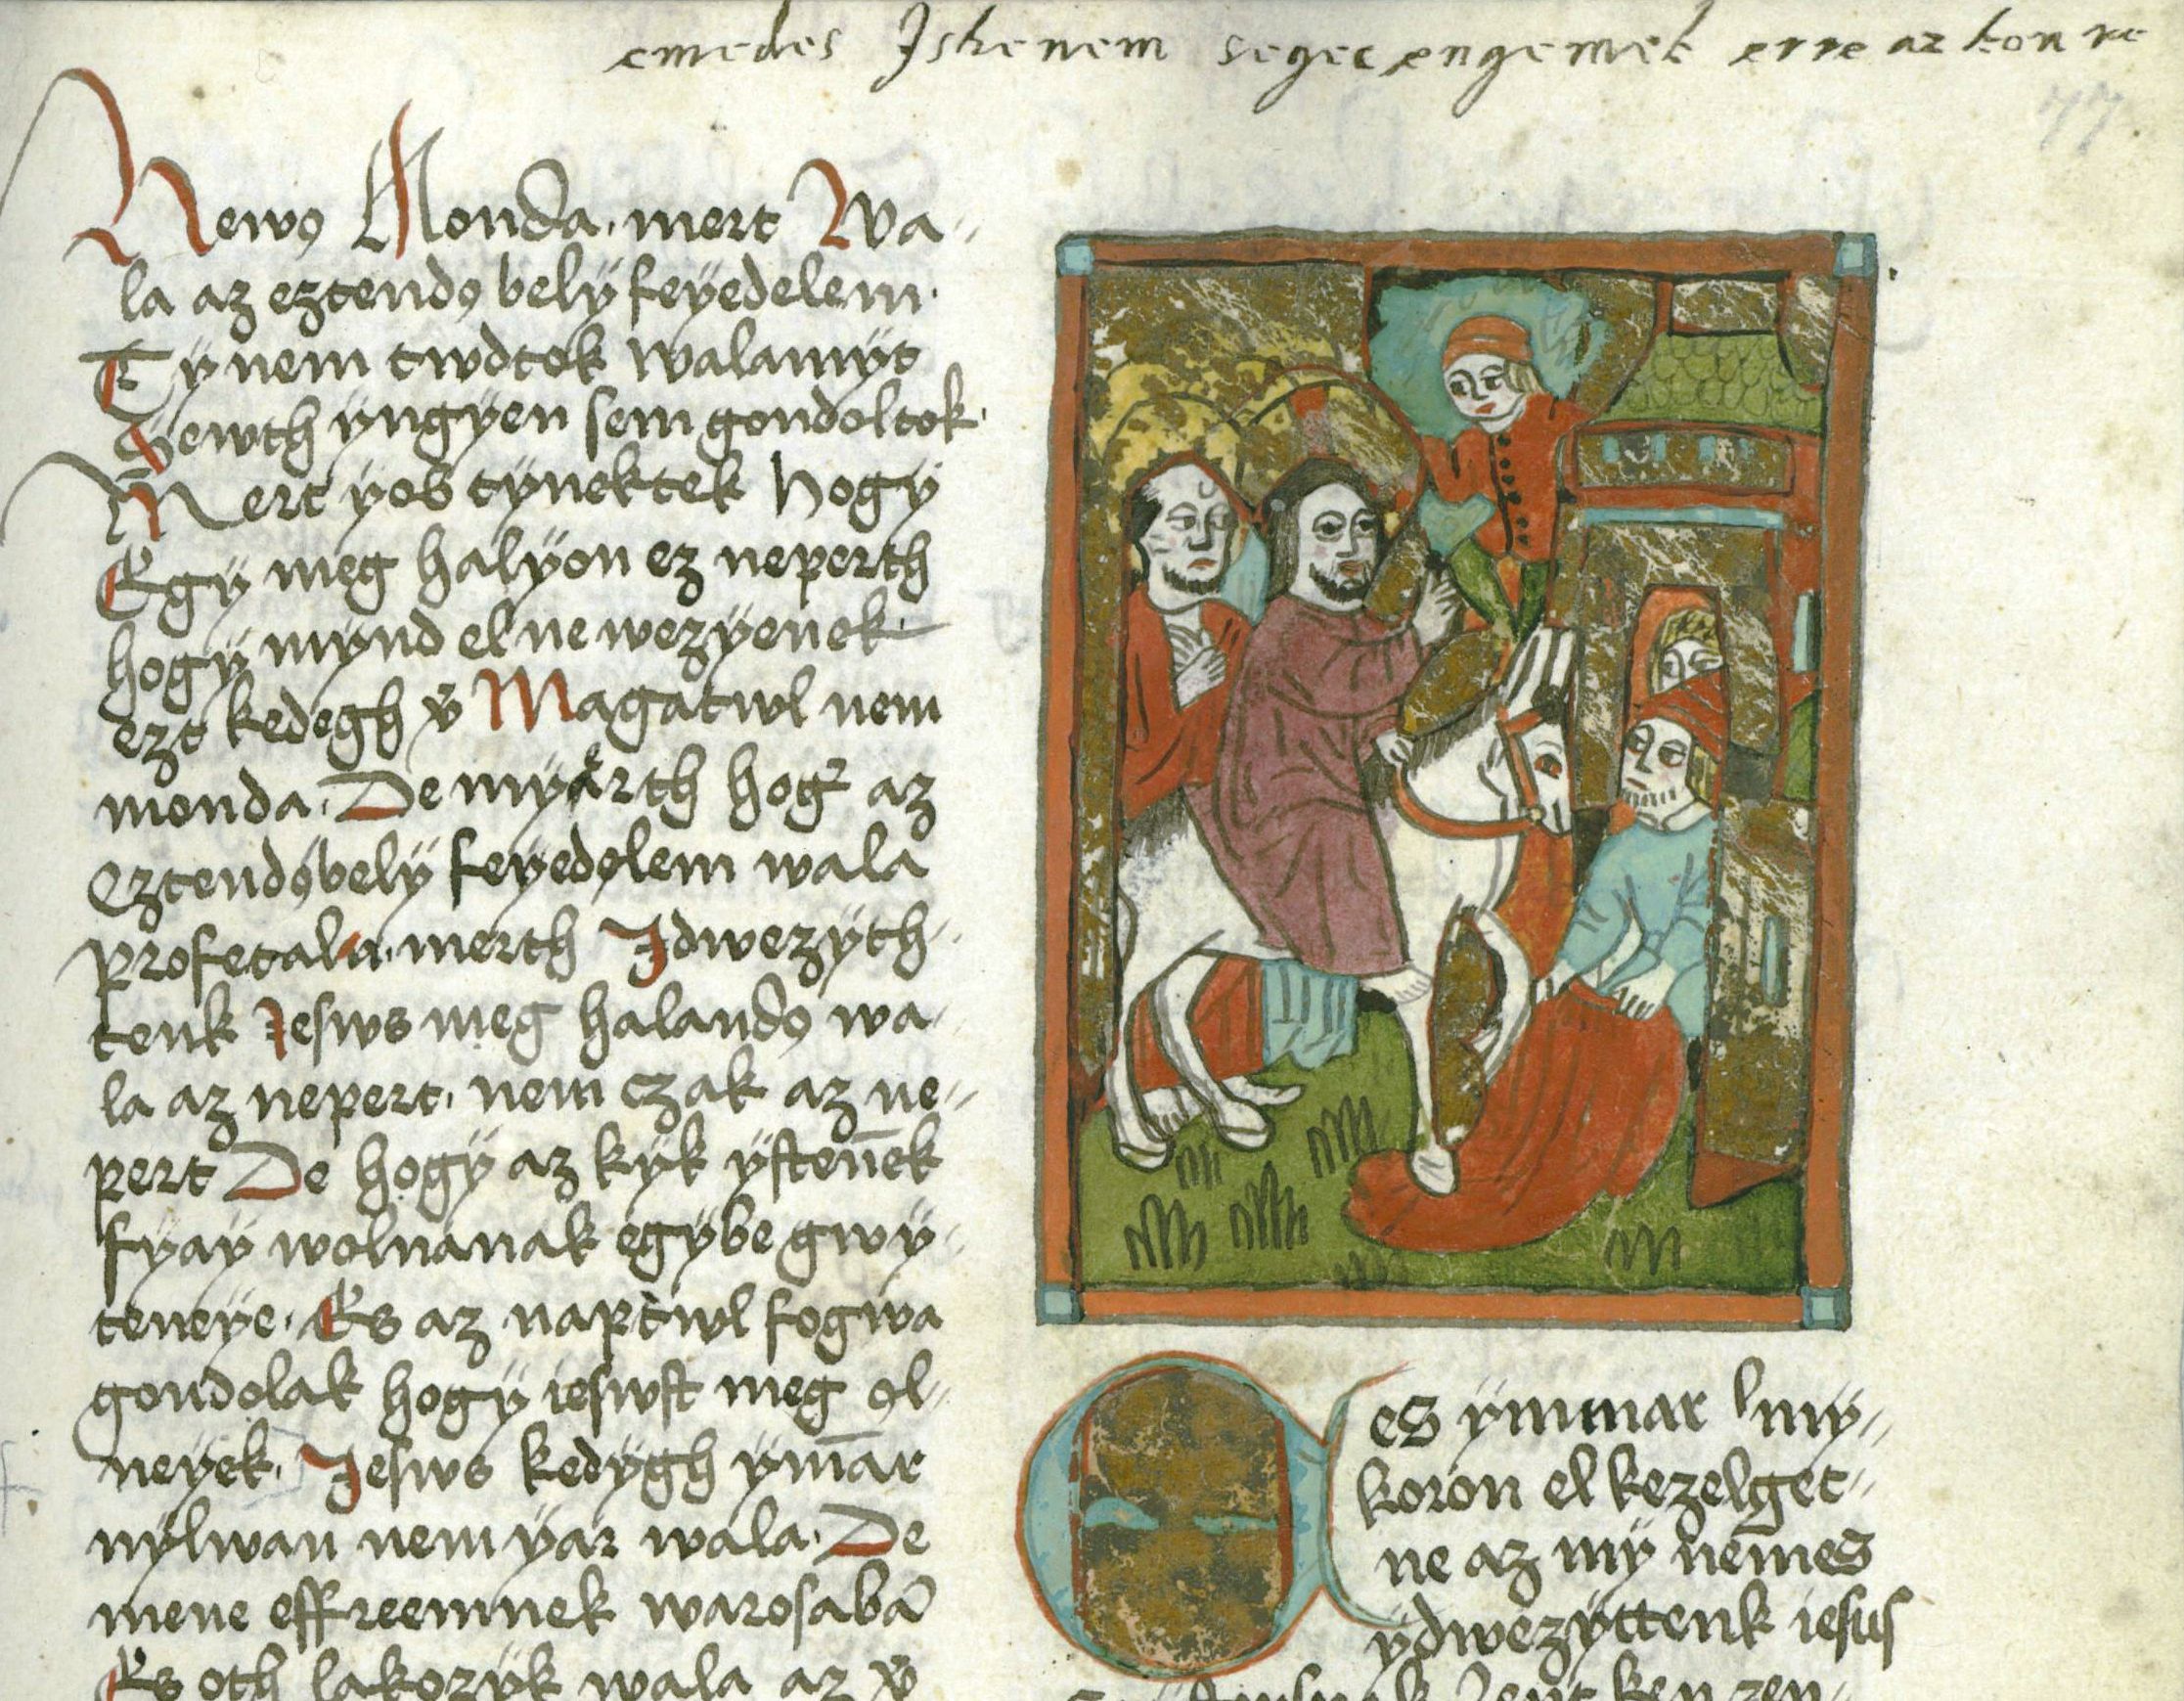 emedes Istenem seges engemet erre az kon ve
77
Newǫ Monda. mert Wa-
la az eztendǫ bely feÿedelem.
Tÿ nem twdtok walamÿt
Sewth ÿngÿen sem gondoltok.
Mert ÿob tÿnektek hogÿ
Egÿ meg halÿon ez neperth
hogÿ mÿnd el ne wezÿenek.
ezt kedegh v̋ Magatwl nem
monda. De mÿærth hogꝛ az
Eztendǫbelÿ feÿedǫlem wala
profetala. merth Idwezÿth-
tenk Jesws meg halandǫ wa-
la az nepert. nem czak az ne-
pert De hogÿ az kÿk ÿsten̄ek
fÿaÿ wolnanak egÿbe gwÿ-
teneÿe. Es az naptwl fogwa
gondolak hogÿ ieswst meg ǫl-
neÿek. Jesws kedÿgh ÿm̄ar
nÿlwan nem ÿar wala. De
mene effreemnek warosabā
Es oth lakozÿk wala az v̋
es ÿmmar Imÿ-
koron el kezelget-
ne az mÿ nēmes
ÿdwezÿttenk iesus